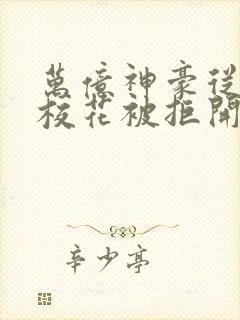 萬億神豪從
校花被拒開
辛少亭